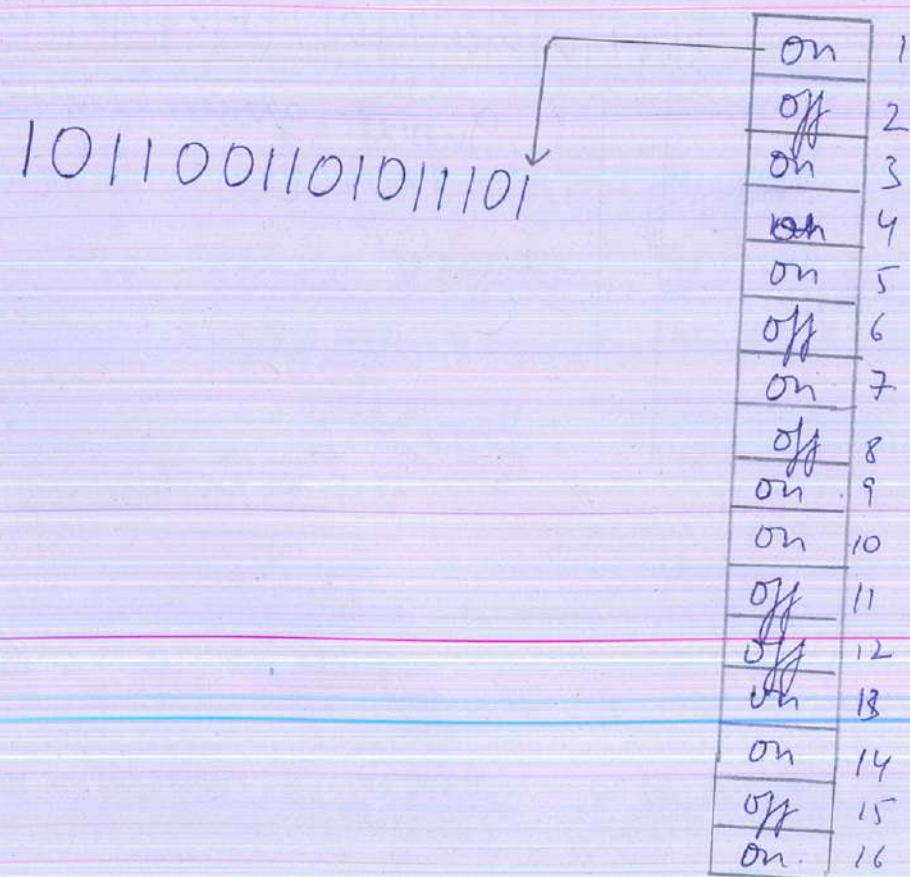 on 1
off 2
1011001101011101
on 3
on 4
on 5
off 6
on 7
off 8
on 9
on 10
off 11
off 12
on 13
on 14
off 15
on. 16